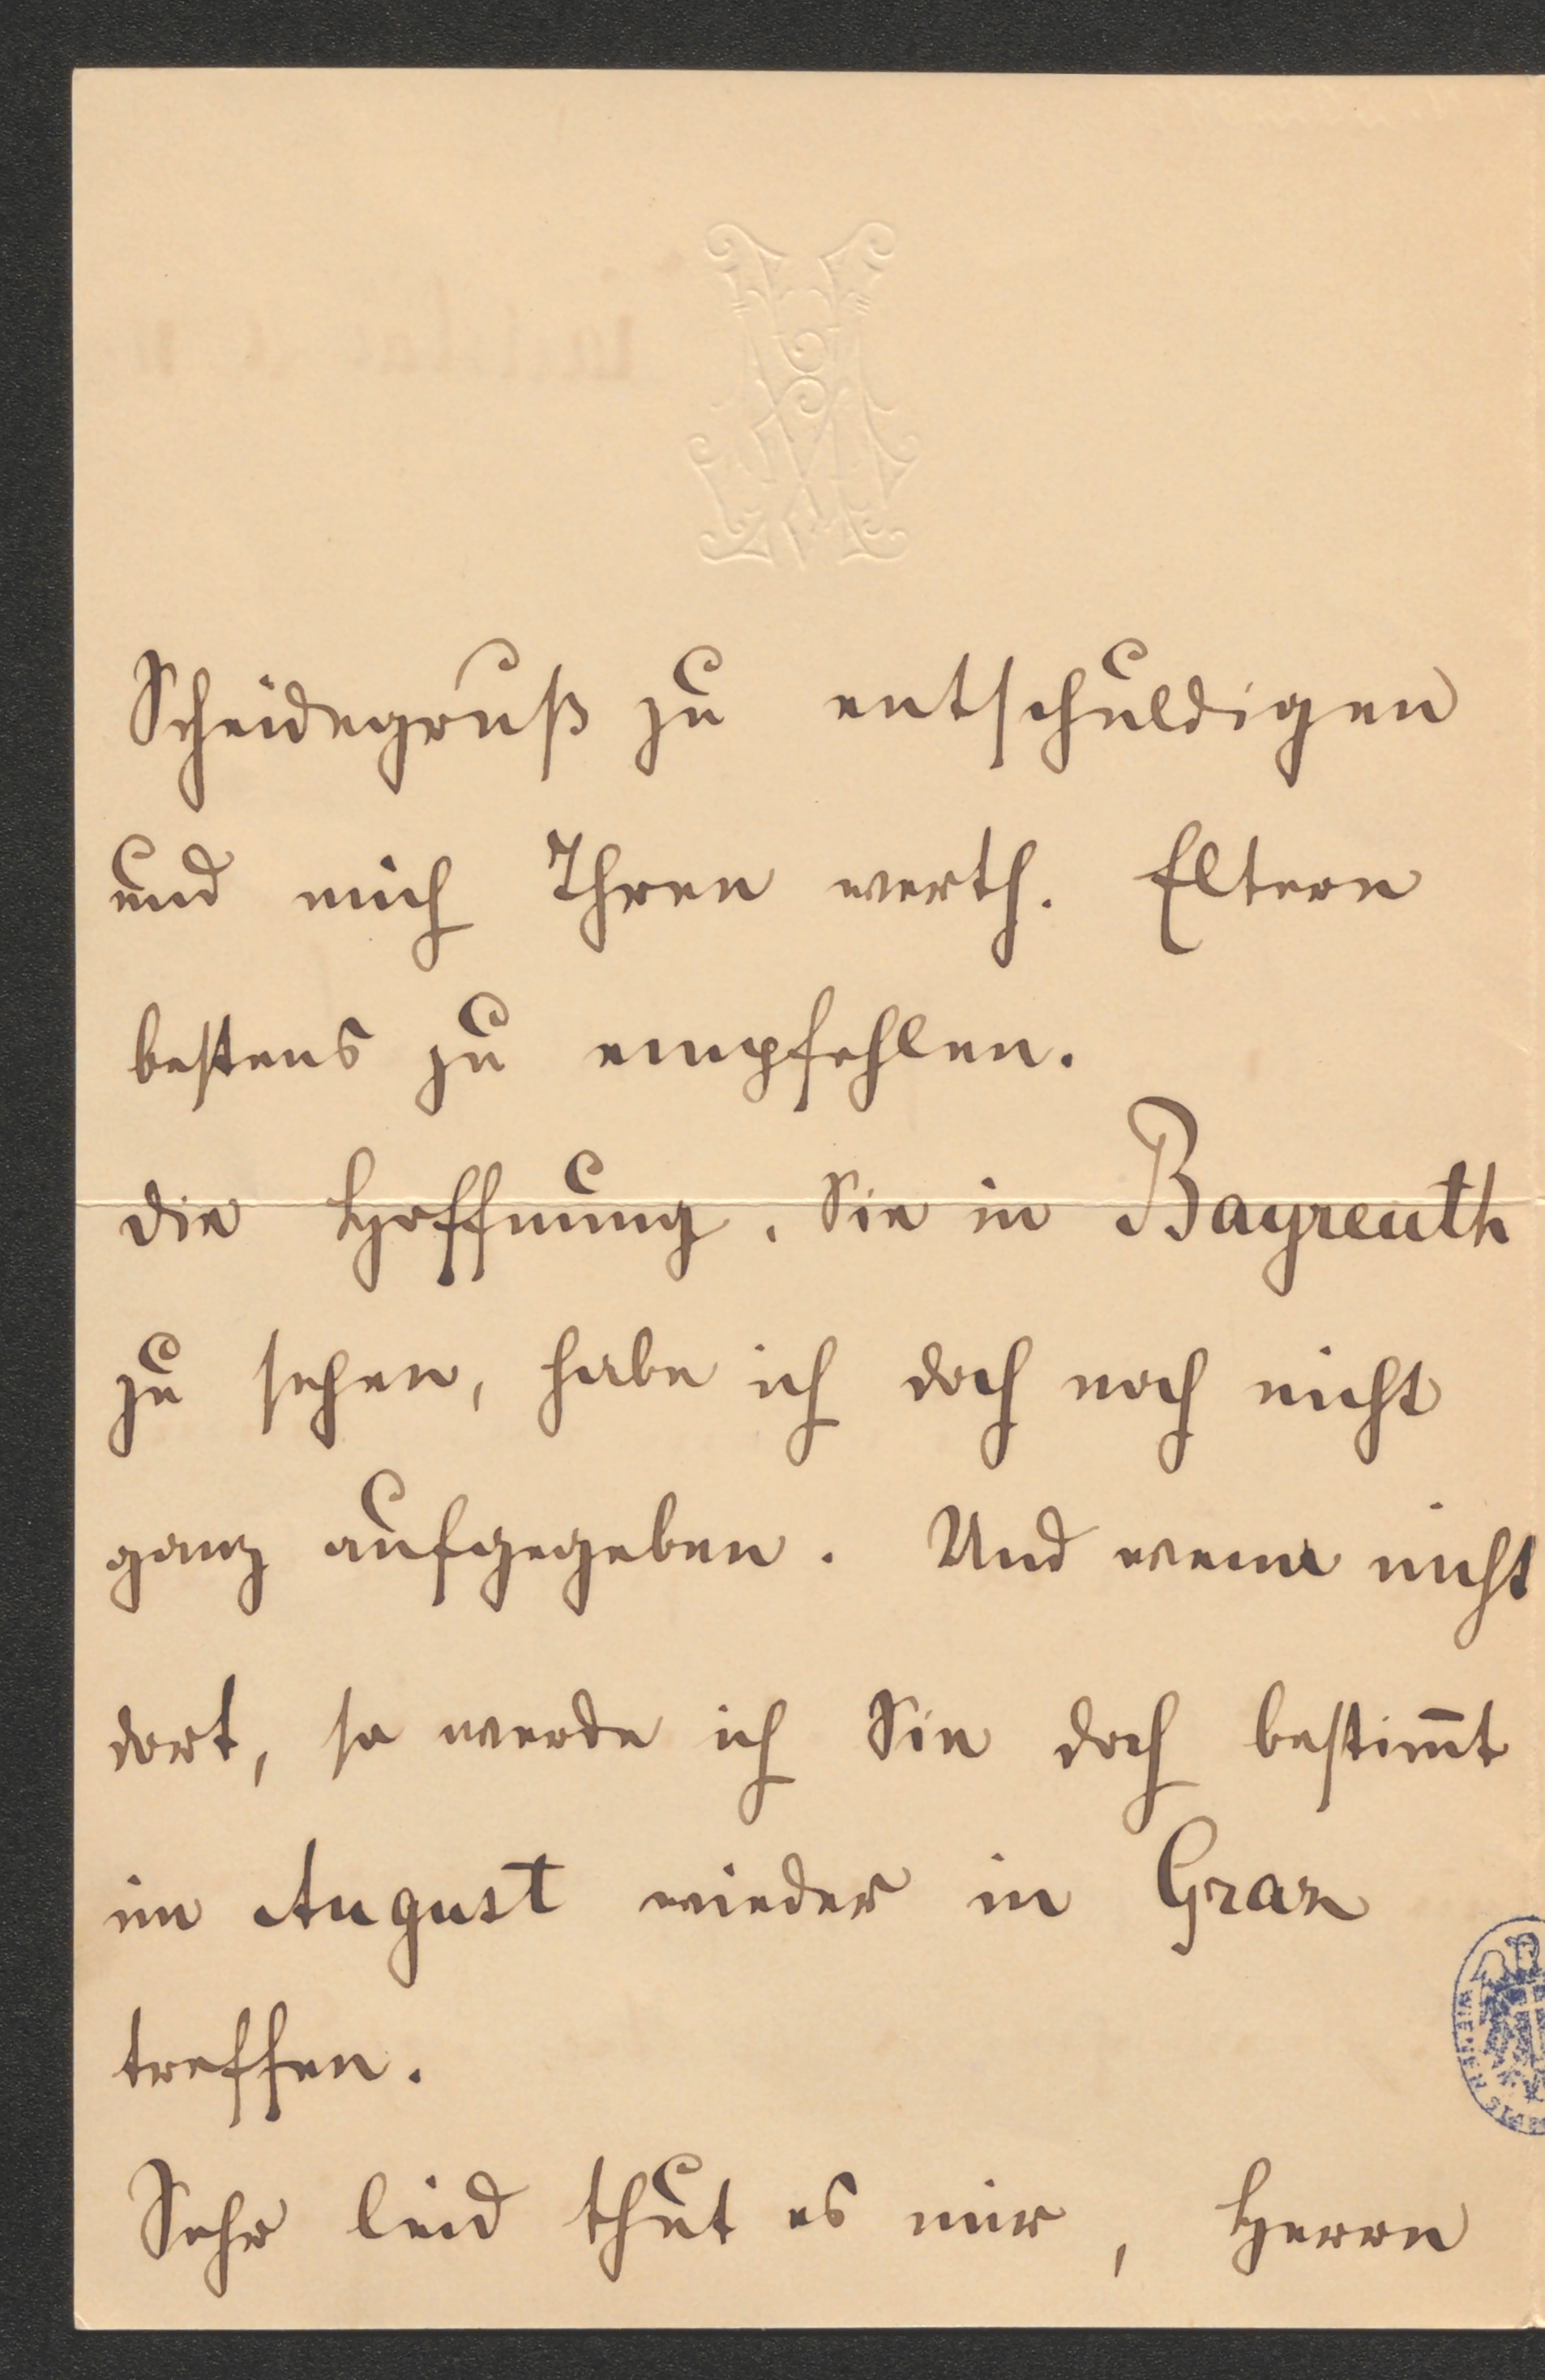 Scheidegruß zu entschuldigen
und mich Ihren werth. Eltern
bestens zu empfehlen.
Die Hoffnung, Sie in Bayreuth
zu sehen, habe ich doch noch nicht
ganz aufgegeben. Und wenn nicht
dort, so werde ich Sie doch bestim̅t
im August wieder in Graz
treffen.
Sehr leid thut es mir, Herrn